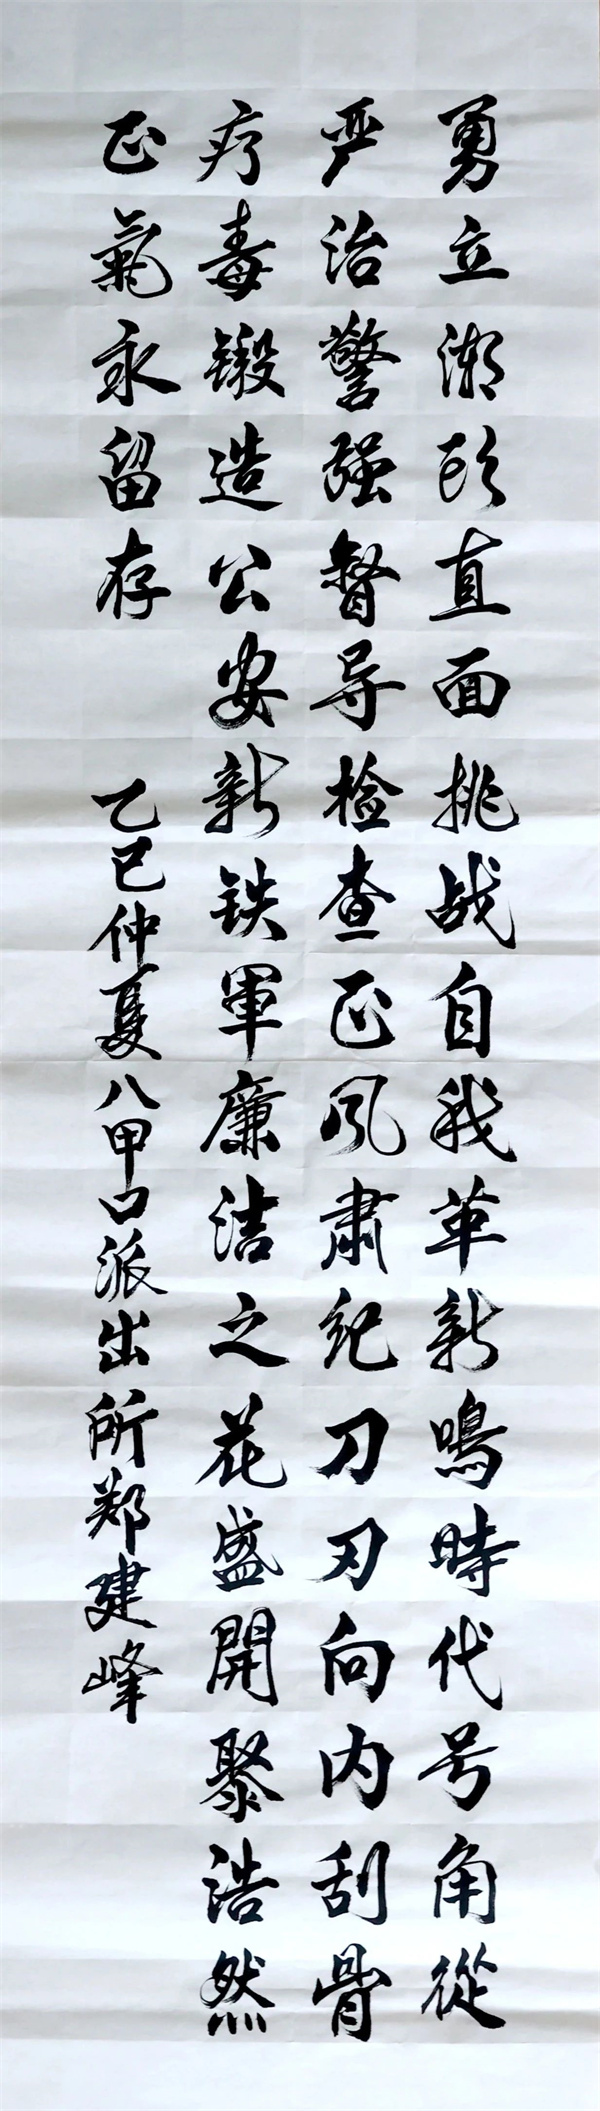 勇立潮头直面挑战自我革新鳴時代号角從
严治警强督导检查正风肃纪刀刃向内刮骨
疗毒锻造公安新铁軍廉洁之花盛開聚浩然
正氣永留存
乙巳仲夏八甲口派出所郑建峰